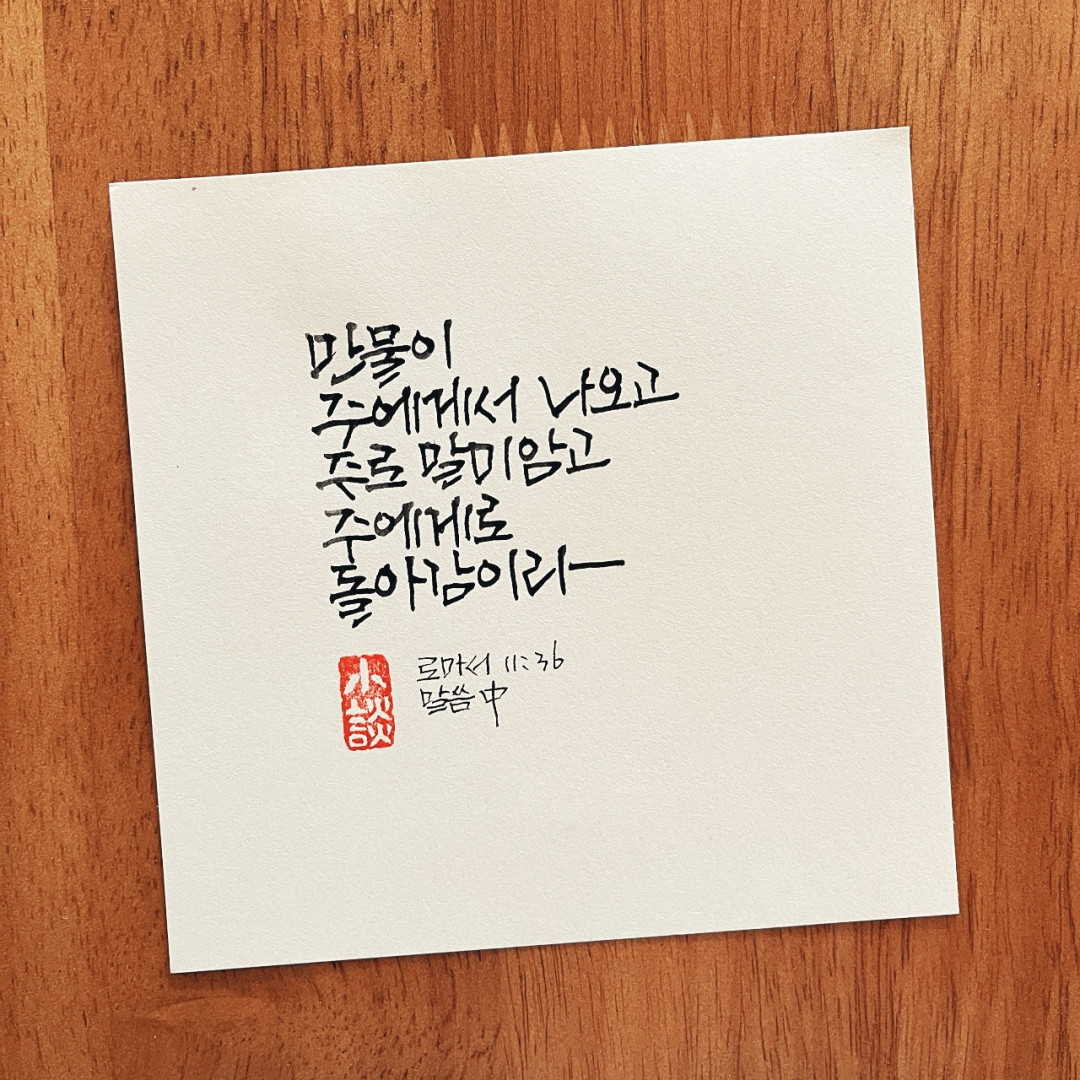 만물이
주에게서 나오고
주로 말미암고
주에게로
돌아감이라ㅡ
로마서 11:36
말씀 中
小談